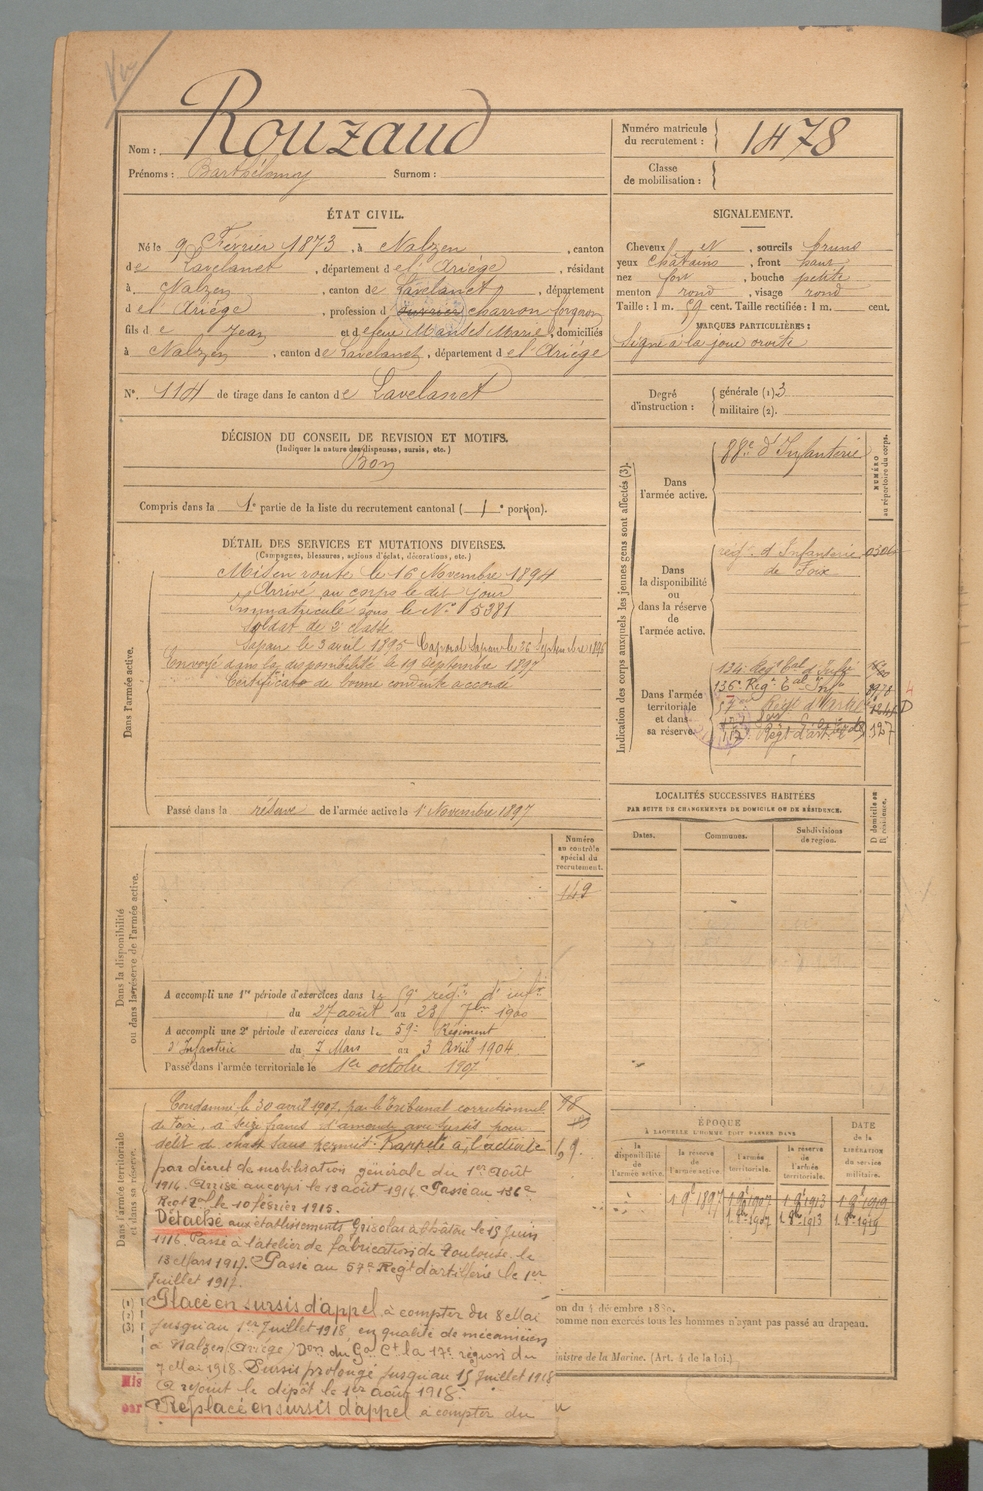 Nom : Rouzaud
Prénoms : Barthélemy Surnom :
Numéro matricule du recrutement : 1478
Classe de mobilisation :
ÉTAT CIVIL.
Né le 9 Février 1873, à Nalzen, canton
de Lavelanet, département de l'Ariége, résidant
à Nalzen, canton de Lavelanet, département
de l'Ariége, profession d'ouvrier charron forgeron
fils de Jean et de feue Manset Marie, domiciliés
à Nalzen, canton de Lavelanet, département de l'Ariége
N°. 114 de tirage dans le canton de Lavelanet
SIGNALEMENT.
Cheveux N, sourcils bruns
yeux châtains, front haut
nez fort, bouche petite
menton rond, visage rond
Taille : 1 m. 59 cent. Taille rectifiée : 1 m. cent.
MARQUES PARTICULIÈRES :
Signe à la joue droite
Degré d'instruction : générale (1) 3
militaire (2).
DÉCISION DU CONSEIL DE REVISION ET MOTIFS.
(Indiquer la nature des dispenses, sursis, etc.)
Bon
Compris dans la 1e partie de la liste du recrutement cantonal ( 1e portion).
DÉTAIL DES SERVICES ET MUTATIONS DIVERSES.
(Campagnes, blessures, actions d'éclat, décorations, etc.)
Dans l'armée active.
Mis en route le 16 Novembre 1894
Arrivé au corps le dit jour
Immatriculé sous le No 5381
Soldat de 2e classe
Sapeur le 3 avril 1895 Caporal Sapeur le 26 Septembre 1896
Envoyé dans la disponibilité le 19 Septembre 1897
Certificat de bonne conduite accordé
Passé dans la réserve de l'armée active le 1er Novembre 1897
Indication des corps auxquels les jeunes gens sont affectés (3).
NUMÉRO au répertoire du corps.
Dans l'armée active.
88e d'Infanterie
Dans la disponibilité ou dans la réserve de l'armée active.
régt d'Infanterie
de Foix
Dans l'armée territoriale et dans sa réserve.
134e Régt tal d'Infie
136e Regt Tal Infie
57e Régt d'Artie
112e Régt d'art. 127
LOCALITÉS SUCCESSIVES HABITÉES
PAR SUITE DE CHANGEMENTS DE DOMICILE OU DE RÉSIDENCE.
Dates. Communes. Subdivisions de région.
D domicile ou R résidence.
Dans la disponibilité ou dans la réserve de l'armée active.
Numéro au contrôle spécial du recrutement.
149
A accompli une 1re période d'exercices dans le 59e régt d'inft
du 27 août au 23 7bre 1900
A accompli une 2e période d'exercices dans le 59e Régiment
d'Infanterie du 7 Mars au 3 Avril 1904
Passé dans l'armée territoriale le 1er octobre 1907
Dans l'armée territoriale et dans sa réserve.
Condamné le 30 avril 1907 par le Tribunal correctionnel
de Foix, à seize francs d'amende avec sursis pour
délit de chasse sans permis. Rappelé à l'activité
par décret de mobilisation générale du 1er Août
1914. Arrivé au corps le 13 août 1914. Passé au 136e
Régt Tal le 10 février 1915.
Détaché aux établissements le 15 Juin
1916. Passé à l'atelier de fabrication de Toulouse le
13 Mars 1917. Passé au 57e Regt d'artillerie le 1er
Juillet 1917.
Placé en sursis d'appel à compter du 8 Mai
jusqu'au 1er Juillet 1918 en qualité de mécanicien
à Nalzen (Ariége) Don du Gal Ct la 17e région du
7 Mai 1918. Sursis prolongé jusqu'au 15 Juillet 1918
A rejoint le dépôt le 1er août 1918.
Replacé en sursis d'appel à compter du
ÉPOQUE
À LAQUELLE L'HOMME DOIT PASSER DANS
la disponibilité de l'armée active.
la réserve de l'armée active
l'armée territoriale.
la réserve de l'armée territoriale.
DATE de la LIBÉRATION du service militaire.
1 9e 1897 1 9e 1907 1 9e 1913 1 9e 1919
1 9bre 1907 1 9bre 1913 1 9bre 1919
(1)
(2)
(3)
on du 4 décembre 1889.
comme non exercés tous les hommes n'ayant pas passé au drapeau.
inistre de la Marine. (Art. 4 de la loi.)